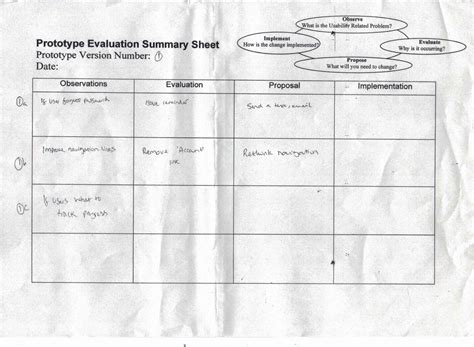 Observe
What is the Usability Related Problem?
Implement
How is the change implemented?
Evaluate
Why is it occurring?
Propose
What will you need to change?
Prototype Evaluation Summary Sheet
Prototype Version Number: ①
Date:
Observations Evaluation Proposal Implementation
1a If user forgets password Have reminder Send a text, email
1b Improve navigation Remove 'Account' Rethink navigation
link
1c If users
track